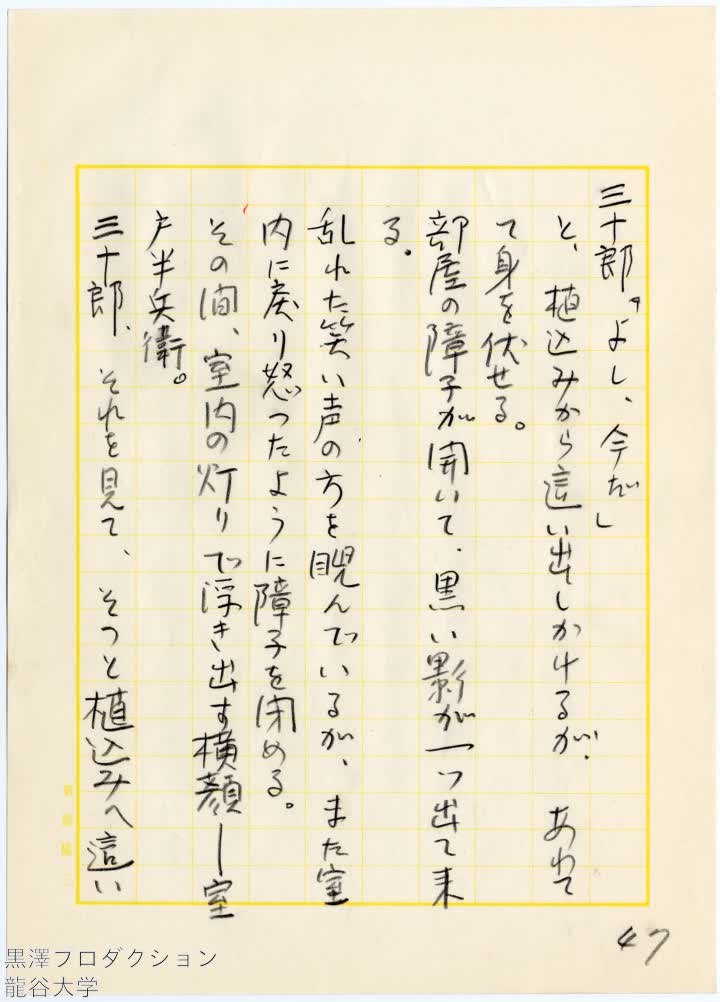 三十郎「よし、今だ」
と、植込みから這い出しかけるが、あわて
て身を伏せる。
部屋の障子が開いて、黒い影が一つ出て来
る。
乱れた笑い声の方を睨んでいるが、また室
内に戻り怒ったように障子を閉める。
その間、室内の灯りで浮き出す横顔―室
戸半兵衛。
三十郎、それを見て、そっと植込みへ這い
47
黒澤プロダクション
龍谷大学